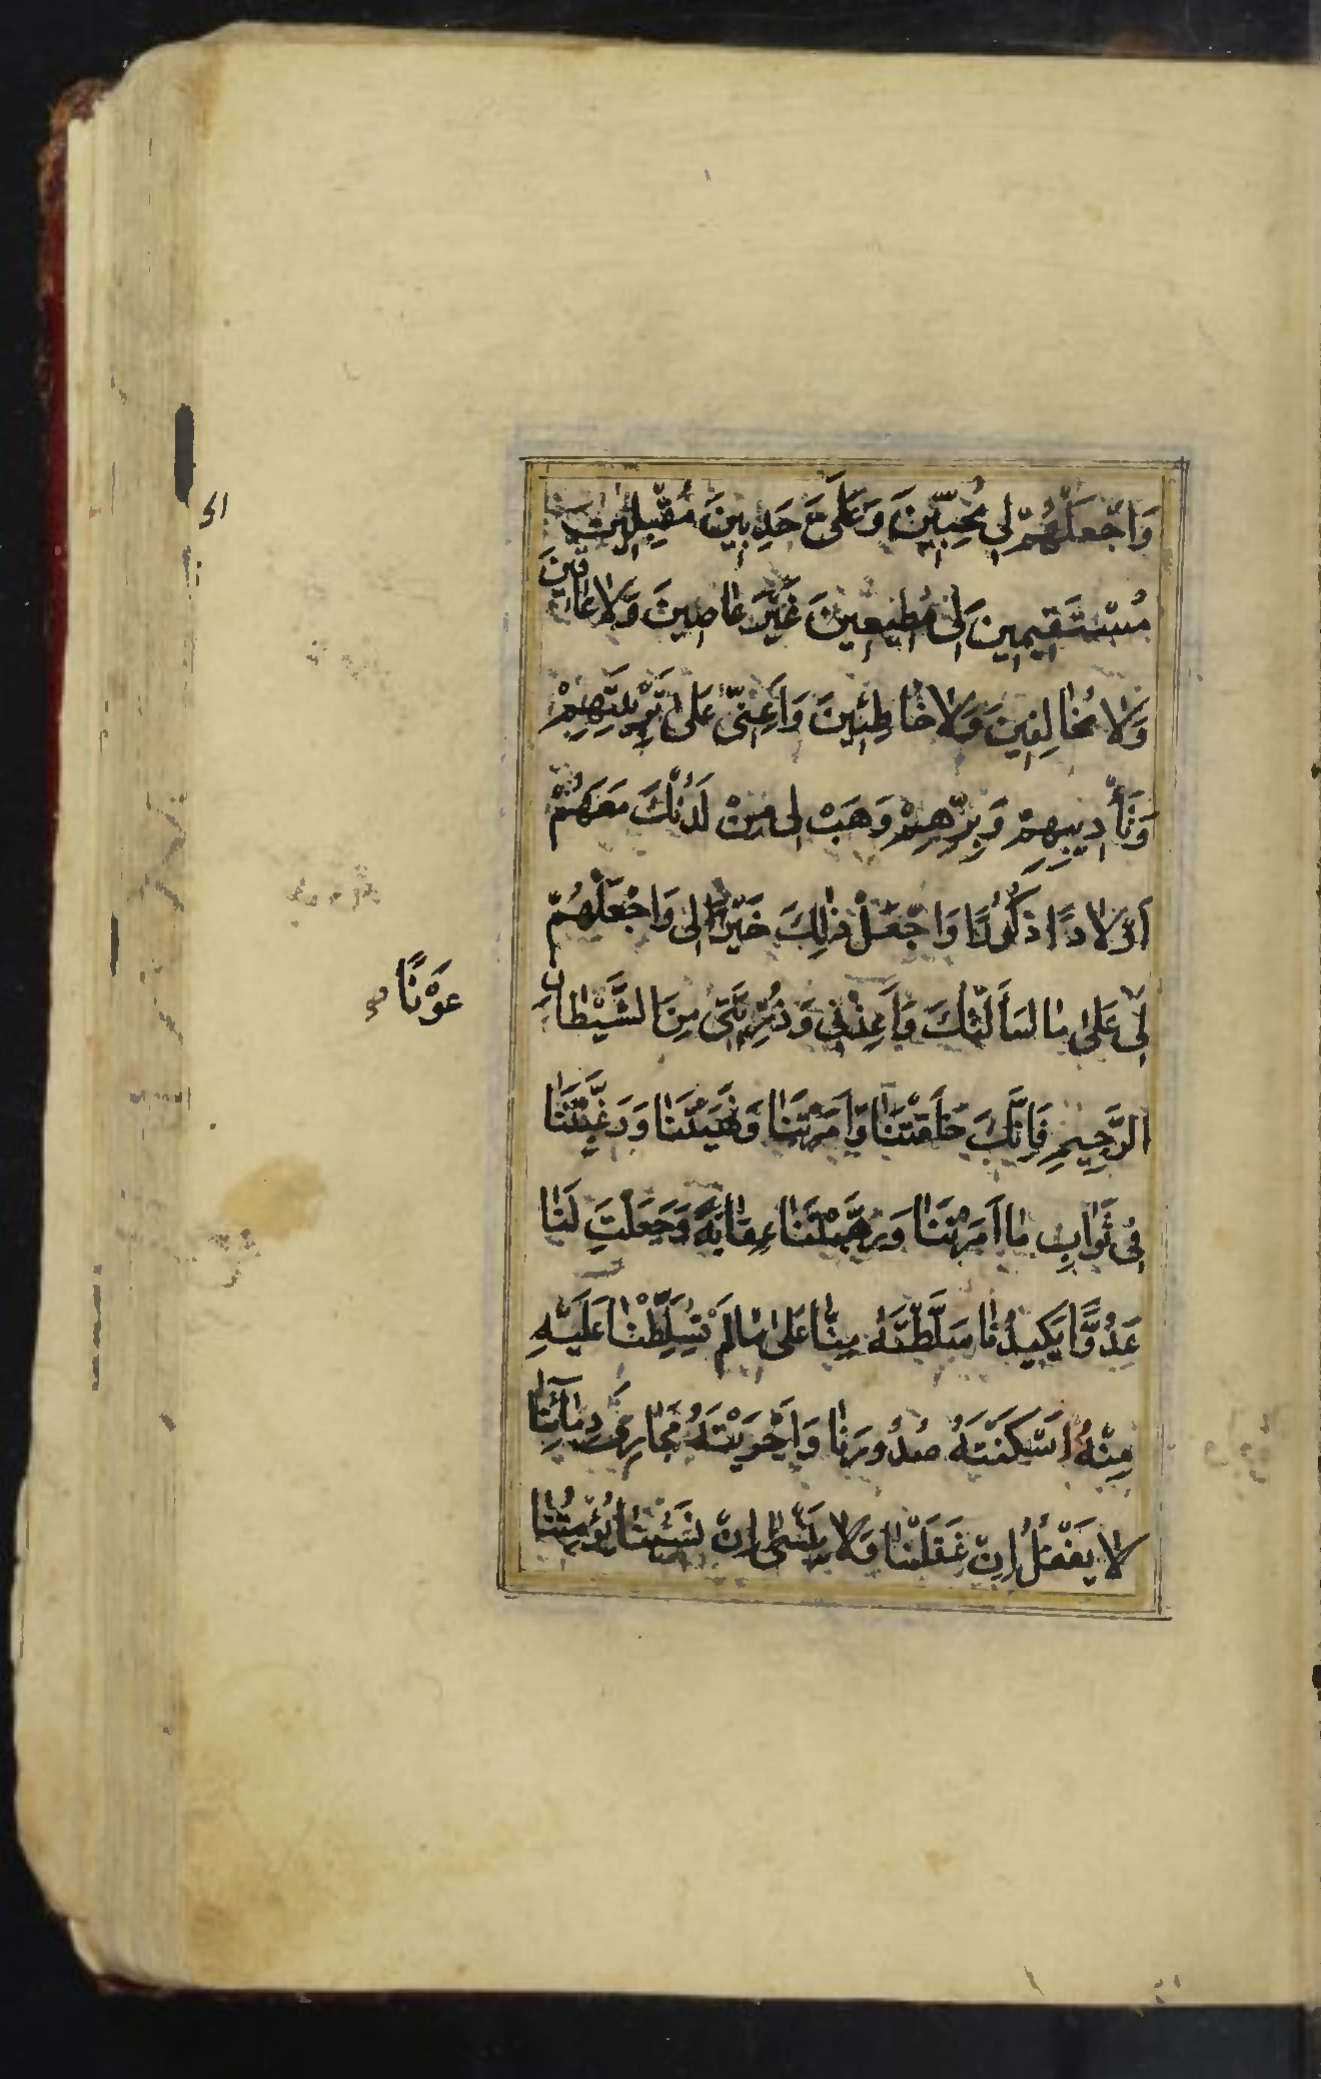 وَاجْعَلْهُمْ لِي مُحِبِّينَ وَعَلَيَّ حَدِبِينَ مُقْبِلِينَ
مُسْتَقِيمِينَ لِي مُطِيعِينَ غَيْرَ عَاصِينَ وَلَا عَاقِّينَ
وَلَا مُخَالِفِينَ وَلَا خَاطِئِينَ وَأَعِنِّي عَلَى تَرْبِيَتِهِمْ
وَتَأْدِيبِهِمْ وَبِرِّهِمْ وَهَبْ لِي مِنْ لَدُنْكَ مَعَهُمْ
أَوْلَادًا ذُكُورًا وَاجْعَلْ ذَلِكَ خَيْرًا لِي وَاجْعَلْهُمْ
لِي عَلَى مَا سَأَلْتُكَ وَأَعِذْنِي وَذُرِّيَّتِي مِنَ الشَّيْطَانِ
عَوْنًا
الرَّجِيمِ فَإِنَّكَ خَلَقْتَنَا وَأَمَرْتَنَا وَنَهَيْتَنَا وَرَغَّبْتَنَا
فِي ثَوَابِ مَا أَمَرْتَنَا وَرَهَّبْتَنَا عِقَابَهُ وَجَعَلْتَ لَنَا
عَدُوًّا يَكِيدُنَا سَلَّطْتَهُ مِنَّا عَلَى مَا لَمْ تُسَلِّطْنَا عَلَيْهِ
مِنْهُ أَسْكَنْتَهُ صُدُورَنَا وَأَجْرَيْتَهُ مَجَارِيَ دِمَائِنَا
لَا يَغْفُلُ إِنْ غَفَلْنَا وَلَا يَنْسَى إِنْ نَسِينَا يُؤْمِنُنَا